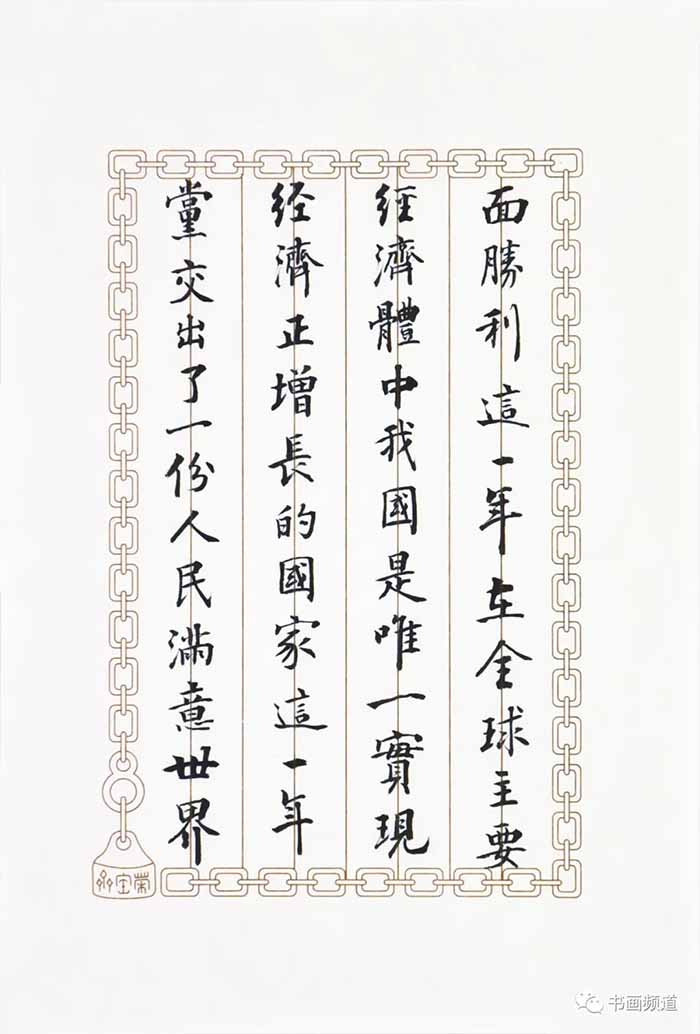 面勝利這一年在全球主要
經濟體中我國是唯一實現
经濟正增長的國家這一年
黨交出了一份人民滿意世界
榮宝齋
书画频道